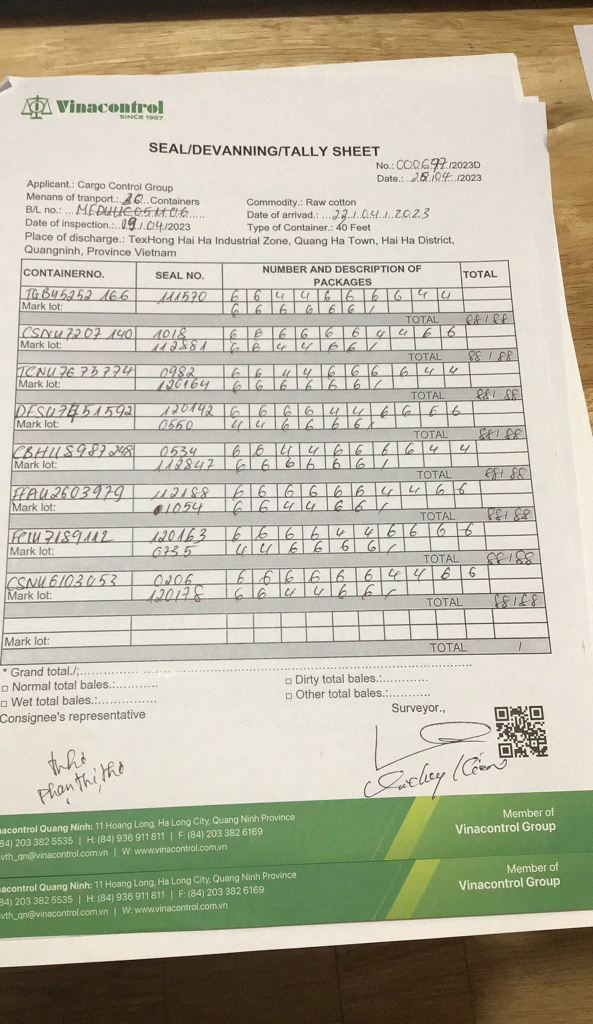 Vinacontrol
SINCE 1957
SEAL/DEVANNING/TALLY SHEET
No.: 000697/2023D
Date.: 25/04/2023
Applicant.: Cargo Control Group
Menans of tranport.: 20 Containers
Commodity.: Raw cotton
B/L no.: MEDUUC051106
Date of arrived.: 22/04/2023
Date of inspection.: 09/04/2023
Type of Container.: 40 Feet
Place of discharge.: TexHong Hai Ha Industrial Zone, Quang Ha Town, Hai Ha District,
Quangninh, Province Vietnam
CONTAINERNO. SEAL NO. NUMBER AND DESCRIPTION OF PACKAGES TOTAL
TGBU5252166 111570 6 6 4 4 6 6 6 6 4 4
Mark lot: 6 6 6 6 6 6 /
TOTAL 88/88
CSNU7207140 1018 6 6 6 6 6 6 4 4 6 6
Mark lot: 112881 6 6 4 4 6 6 /
TOTAL 88/88
TCNU7675774 0982 6 6 4 4 6 6 6 6 4 4
Mark lot: 120164 6 6 6 6 6 6 /
TOTAL 88/88
DFSU7451592 120142 6 6 6 6 4 4 6 6 6 6
Mark lot: 0550 4 4 6 6 6 6
TOTAL 88/88
CBHU8987248 0534 6 6 4 4 6 6 6 6 4 4
Mark lot: 112847 6 6 6 6 6 6 /
TOTAL 88/88
FFAU2603979 112188 6 6 6 6 6 6 4 4 6 6
Mark lot: 1054 6 6 4 4 6 6 /
TOTAL 88/88
FCIU7189112 120163 6 6 6 6 4 4 6 6 6 6
Mark lot: 0735 4 4 6 6 6 6 /
TOTAL 88/88
CSNU6103053 0206 6 6 6 6 6 6 4 4 6 6
Mark lot: 120178 6 6 4 4 6 6 /
TOTAL 88/88
Mark lot:
TOTAL /
* Grand total./:
□ Normal total bales.:
□ Dirty total bales.:
□ Wet total bales.:
□ Other total bales.:
Consignee's representative
Surveyor.,
Thơ
Phan Thị Thơ
nacontrol Quang Ninh: 11 Hoang Long, Ha Long City, Quang Ninh Province
84) 203 382 5535 | H: (84) 936 911 811 | F: (84) 203 382 6169
vth_qn@vinacontrol.com.vn | W: www.vinacontrol.com.vn
Member of
Vinacontrol Group
nacontrol Quang Ninh: 11 Hoang Long, Ha Long City, Quang Ninh Province
84) 203 382 5535 | H: (84) 936 911 811 | F: (84) 203 382 6169
vth_qn@vinacontrol.com.vn | W: www.vinacontrol.com.vn
Member of
Vinacontrol Group